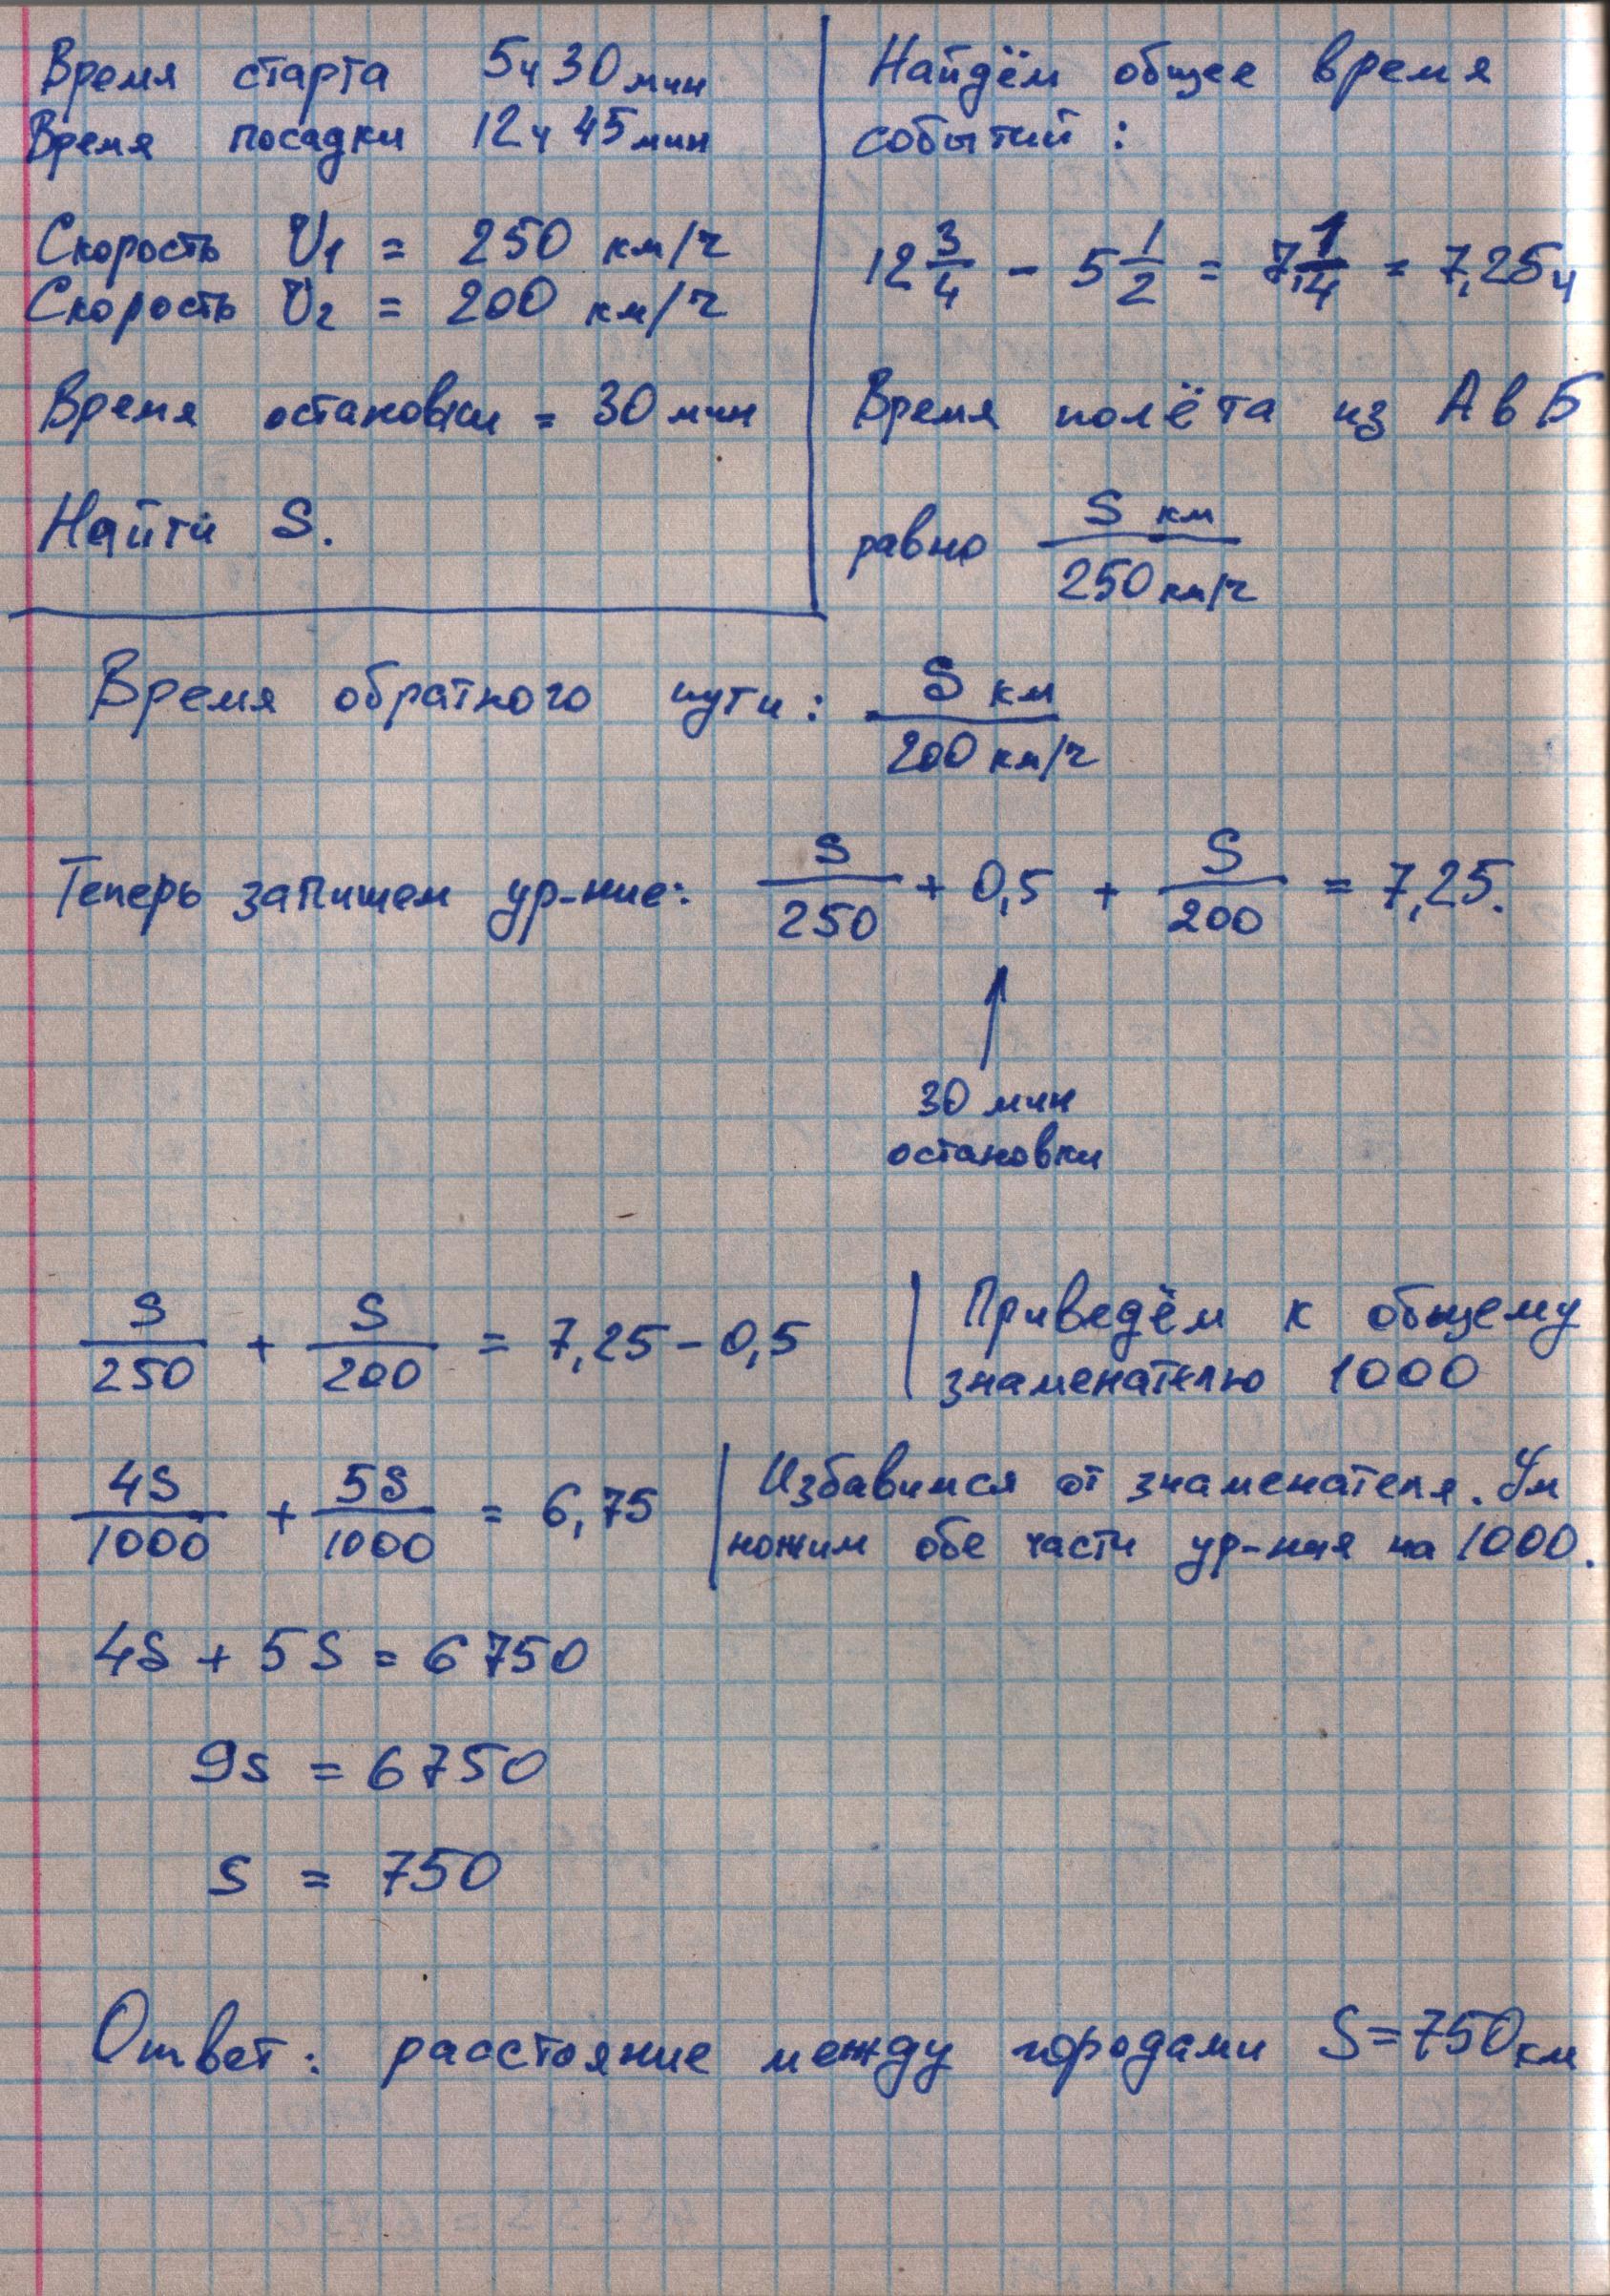 Время старта 5ч 30 мин
Время посадки 12ч 45 мин
Скорость V₁ = 250 км/ч
Скорость V₂ = 200 км/ч
Время остановки = 30 мин
Найти S.
Найдём общее время
событий:
12 3/4 - 5 1/2 = 7 1/4 = 7,25 ч
Время полёта из А в Б
равно S км / 250 км/ч
Время обратного пути: S км / 200 км/ч
Теперь запишем ур-ние: S/250 + 0,5 + S/200 = 7,25.
30 мин
остановки
S/250 + S/200 = 7,25 - 0,5 | Приведём к общему
знаменателю 1000
4S/1000 + 5S/1000 = 6,75 | Избавимся от знаменателя. Ум
ножим обе части ур-ния на 1000.
4S + 5S = 6750
9S = 6750
S = 750
Ответ: расстояние между городами S = 750 км